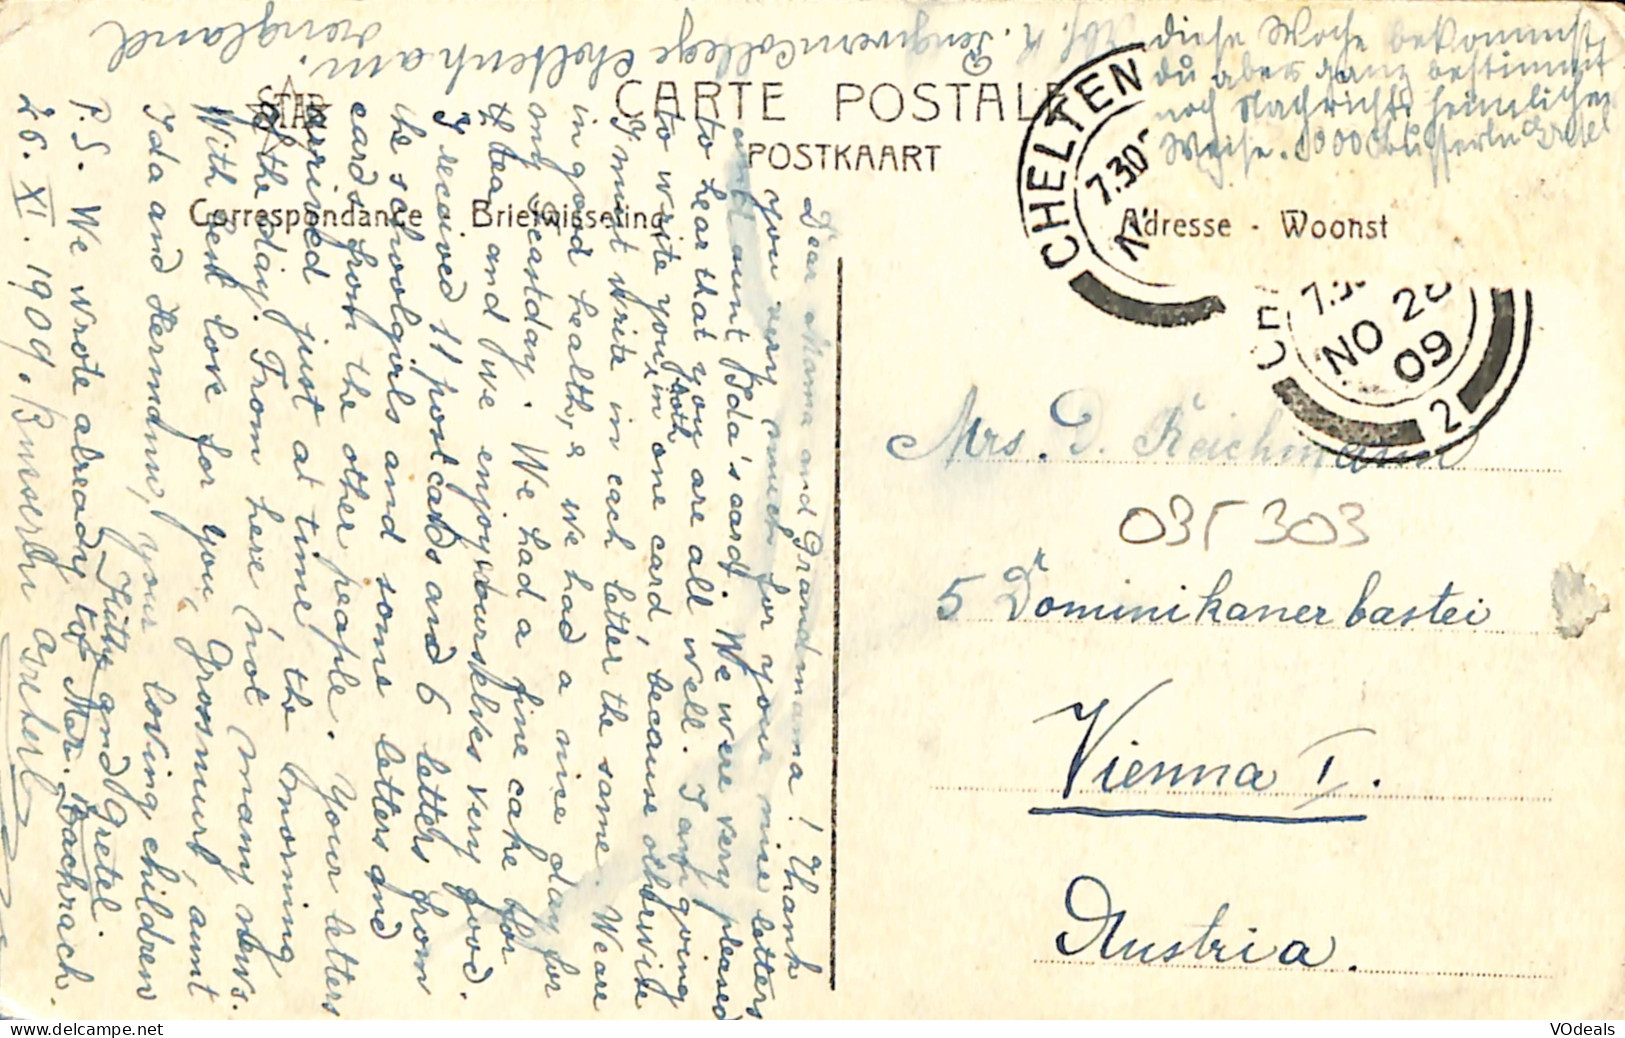 Abs. R. Pengwerncollege Cheltenham.
England
diese Woche bekommst
du aber ganz bestimmt
noch Nachricht, heimlicher
Weise. 10000 Busserln Gretel
STAR
CARTE POSTALE
POSTKAART
Correspondance - Briefwisseling
Adresse - Woonst
CHELTEN
7.30
CHE
7.3
NO 26
09
2
Mrs. D. Reichmann
035303
5 Dr Dominikanerbastei
Vienna I.
Austria.
Dear Mama and Grandmama! Thank
you very much for your nice letters
and aunt Ida's card. We were very pleased
to hear that you are all well. I am going
to write you both in one card, because otherwise
I must write in each letter the same. We are
in good health, & we had a nice day for
my feastday. We had a fine cake for
the tea, and we enjoy ourselves very good.
I received 11 postcards and 6 letters from
the schoolgirls and some letters and
cards from the other people. Your letters
arrived just at time the morning
of the day. From here not many news.
With best love for you, Grossmurl, aunt
Ida and Hermann, your loving children
Titty and Gretel.
P.S. We wrote already to Mar. Bachrach.
26. XI. 1909. Busserln Greterl
VOdeals